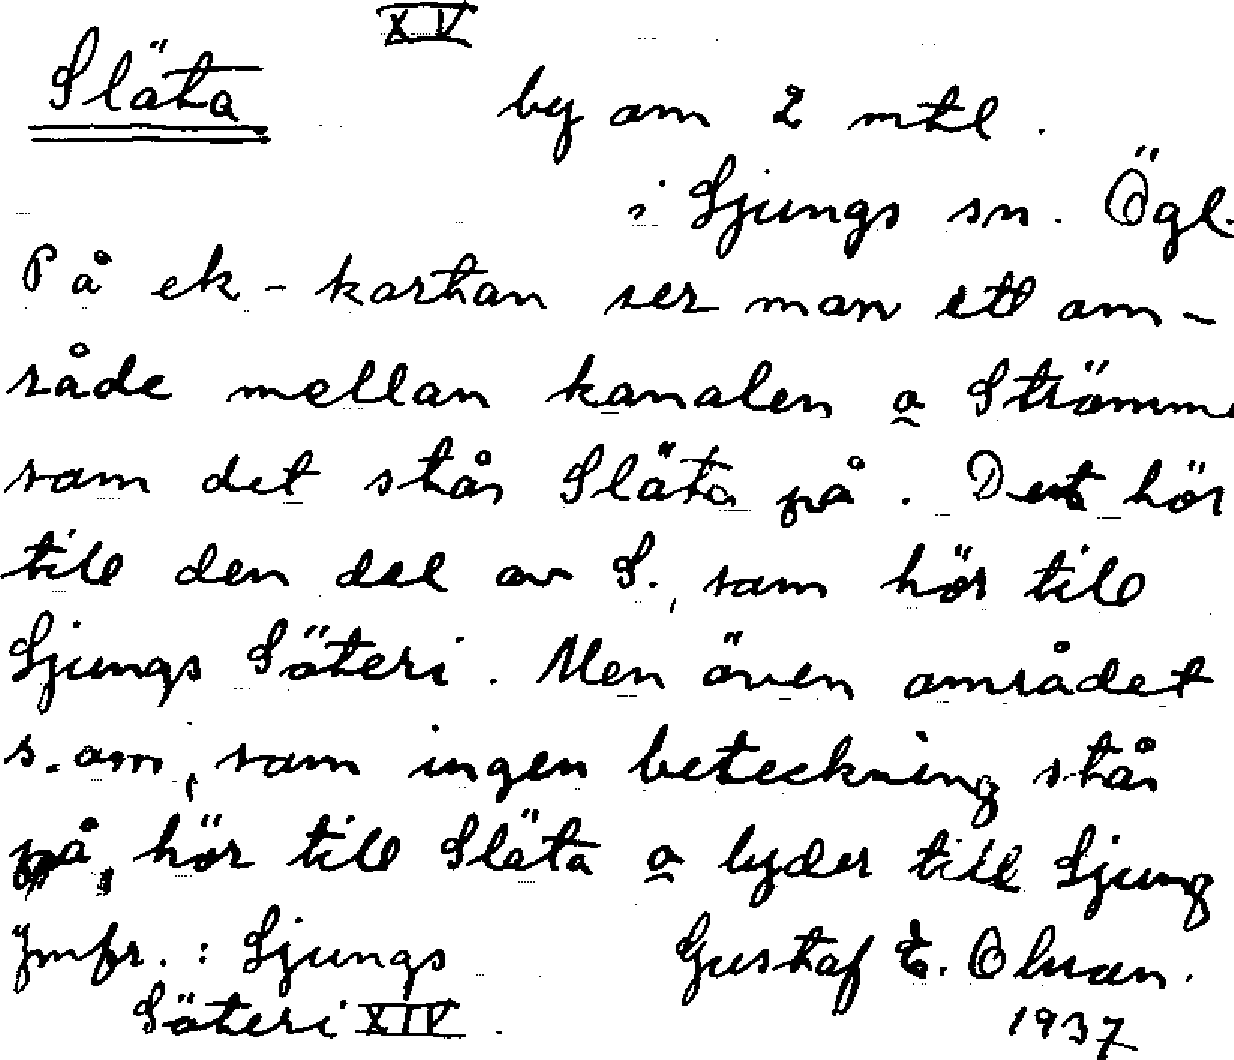 XV
Släta by om 2 mtl.
i Ljungs sn. Ögl.
På ek-kartan ser man ett om-
råde mellan kanalen o Strömm
som det står Släta på. Det hör
till den del av S., som hör till
Ljungs Säteri. Men även området
s.om, som ingen beteckning står
på, hör till Släta o lyder till Ljung
Jmfr.: Ljungs Gustaf E. Olman.
Säteri XIV. 1937